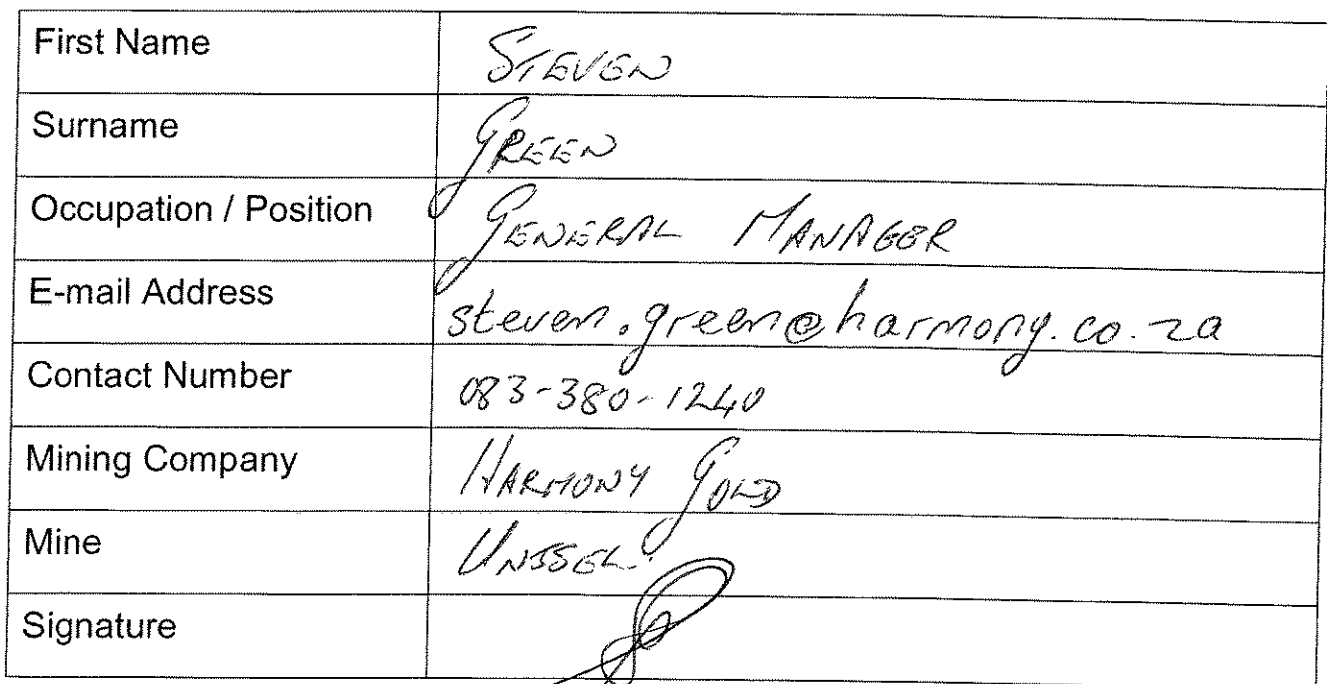 First Name STEVEN
Surname GREEN
Occupation / Position GENERAL MANAGER
E-mail Address steven.green@harmony.co.za
Contact Number 083-380-1240
Mining Company HARMONY GOLD
Mine UNISEL.
Signature